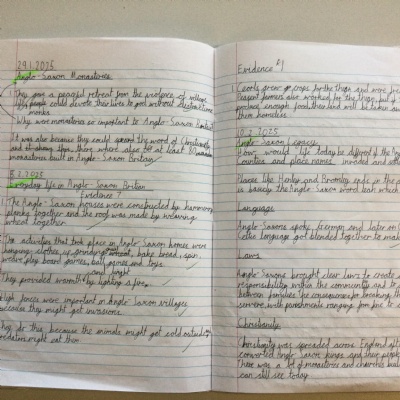 29.1.2025
Anglo-Saxon Monasteries
1. They gave a peaceful retreat from the violence of village
life people could devote their lives to god without distractions
monks
Why were monasteries so important to Anglo-Saxon Britain
It was also because they could spread the word of Christianity
and there where alse be at least
monasteries built in Anglo-Saxon Britain
5.2.2025
Everyday life in Anglo-Saxon Britian
Evidence
1. The Anglo-Saxon houses were constructed by hammering
planks together and the roof was made by weaving
wheat together
The activities that took place in Anglo-Saxon houses were
clothes up, grinding wheat, bake bread, spin,
weave, play board games, ball games and toys.
and light
They provided warmth by lighting a fire
High fences were important in Anglo-Saxon villages
because they might get invasions.
They do this because the animals might get cold outside,
predators might eat them
Evidence
1. Ceorls grew crops for the thgn and were free
Peasant farmers also worked by the thgn, but if
produce enough food, their land will be taken
them homeless
10.2.2025
Anglo-Saxon Legacy
How would life today be different if the Anglo
counties and place names invaded and settled
Places like Henley and Bromley ends in the
is basicly the Anglo-Saxon word leah which
Language
Anglo-Saxons spoke german and later on
Celtic language got blended together to make
Laws
Anglo-Saxons brought clear laws to create a
responsibility within the community and to
between families. The consequences for breaking the
severe, with punishments ranging from fine to
Christianity
Christianity was spreaded across England after
converted Anglo-Saxon kings and their people
There was a lot of monasteries and churches built
can still see today